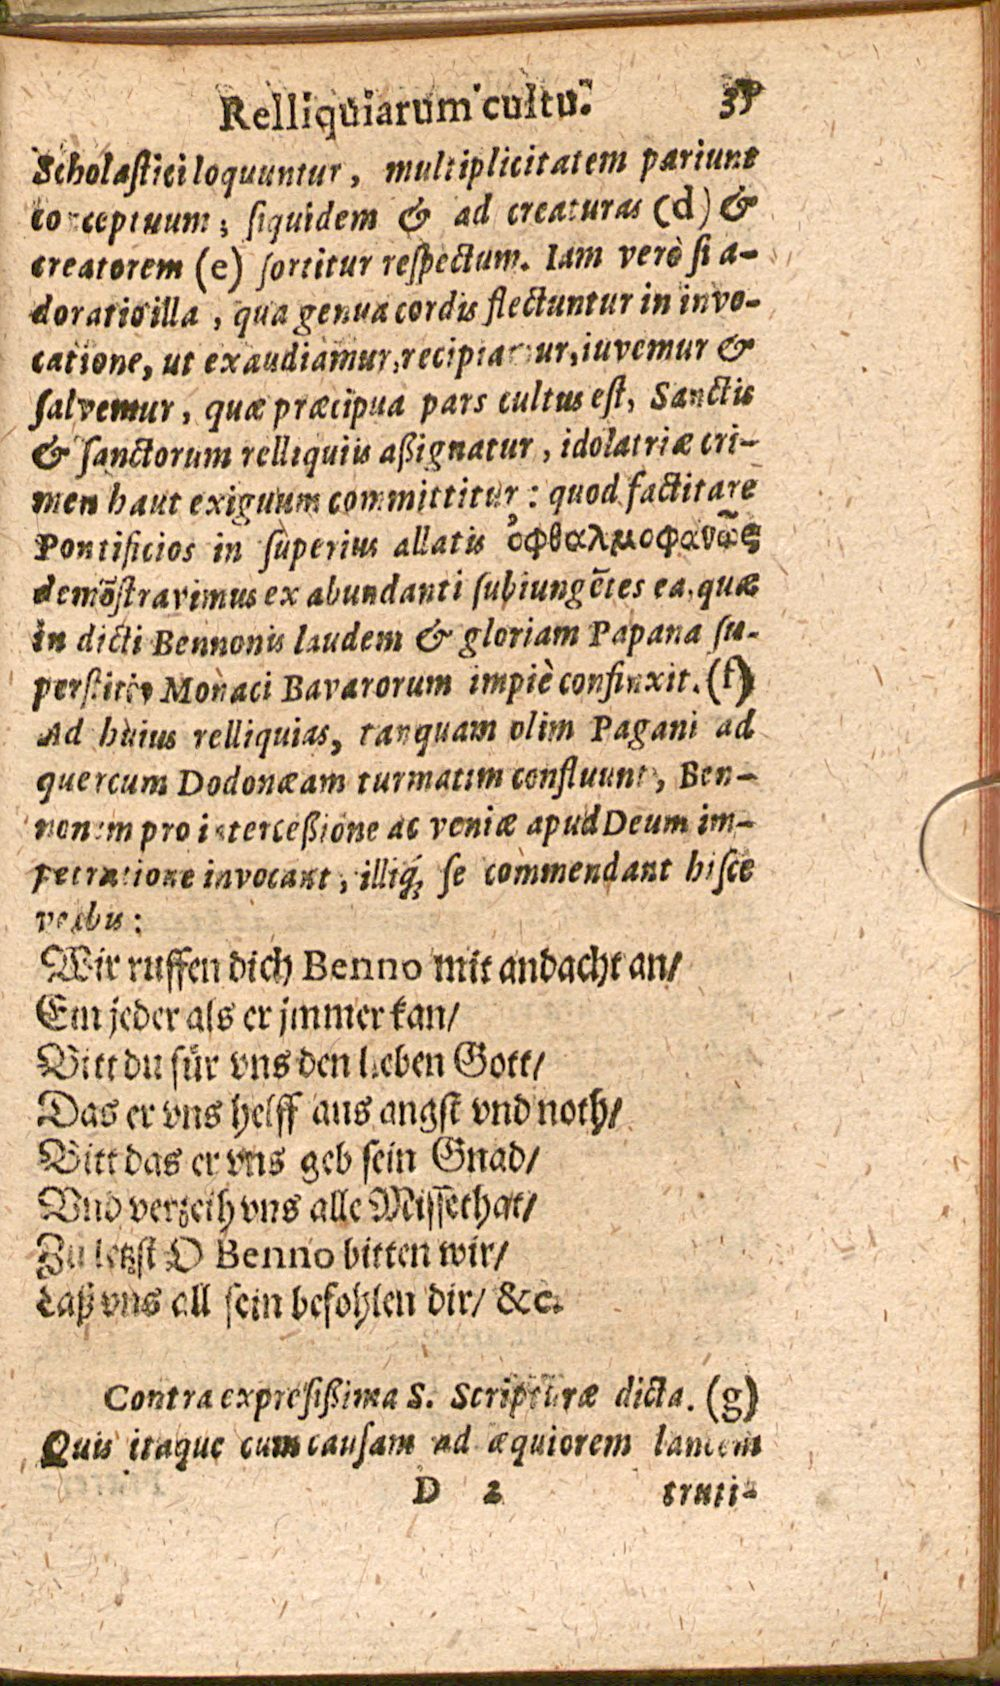 Relliquiarum cultu. 35
Scholaſtici loquuntur, multiplicitatem pariunt
conceptuum; ſiquidem & ad creaturas (d) &
creatorem (e) ſortitur reſpectum. Iam verò ſi a-
doratio illa, qua genua cordis flectuntur in invo-
catione, ut exaudiamur, recipiamur, iuvemur &
ſalvemur, quæ præcipua pars cultus eſt, Sanctis
& ſanctorum relliquiis aßignatur, idolatriæ cri-
men haut exiguum committitur: quod factitare
Pontificios in ſuperius allatis ὀφθαλμοφανῶς
demõſtravimus ex abundanti ſubiungẽtes ea, quæ
in dicti Bennonis laudem & gloriam Papana ſu-
perſtitio Monaci Bavarorum impiè confinxit. (f)
Ad huius relliquias, tanquam olim Pagani ad
quercum Dodonæam turmatim confluunt, Ben-
nonem pro interceßione ac veniæ apud Deum im-
petratione invocant, illiq́; ſe commendant hiſce
verbis:
Wir ruffen dich Benno mit andacht an/
Ein jeder als er jmmer kan/
Bitt du für vns den lieben Gott/
Das er vns helff aus angſt vnd noth/
Bitt das er vns geb ſein Gnad/
Vnd verzeih vns alle Miſſethat/
Zu letzſt O Benno bitten wir/
Laß vns all ſein befohlen dir/ &c.
Contra expreſißima S. Scripturæ dicta. (g)
Quis itaque cum cauſam ad æquiorem lancem
D 2 truti-